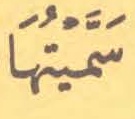 سَمَّيْتُهَا